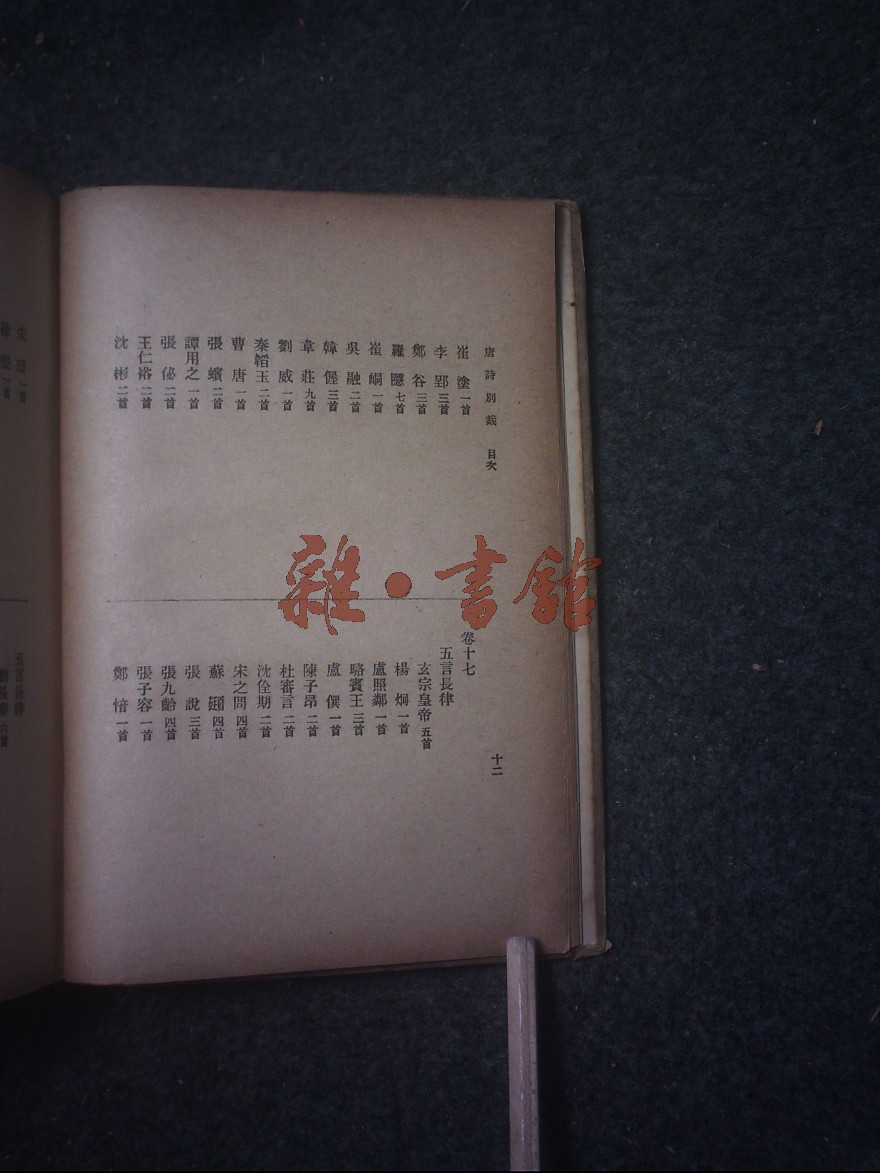 唐詩別裁 目次
崔塗一首
李郢三首
鄭谷三首
羅隱七首
崔峒一首
吳融二首
韓偓三首
韋莊九首
劉威一首
秦韜玉二首
曹唐一首
張蠙二首
譚用之一首
張佖二首
王仁裕二首
沈彬二首
卷十七
五言長律
玄宗皇帝五首
楊炯一首
盧照鄰一首
駱賓王三首
盧僎一首
陳子昂二首
杜審言二首
沈佺期二首
宋之問四首
蘇頲四首
張說三首
張九齡四首
張子容一首
鄭愔一首
十二
五言長律
雜·書館